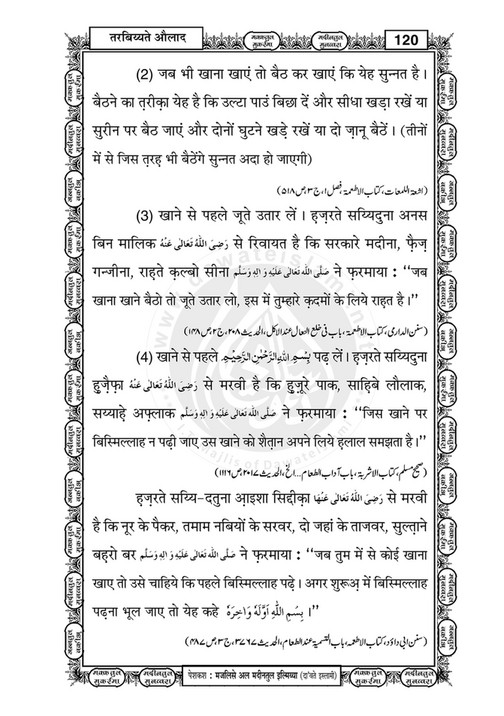 तरबिय्यते औलाद
मक्कतुल मुकर्रमा
मदीनतुल मुनव्वरा
120
(2) जब भी खाना खाएं तो बैठ कर खाएं कि येह सुन्नत है।
बैठने का त़रीक़ा येह है कि उल्टा पाउं बिछा दें और सीधा खड़ा रखें या
सुरीन पर बैठ जाएं और दोनों घुटने खड़े रखें या दो ज़ानू बैठें। (तीनों
में से जिस त़रह़ भी बैठेंगे सुन्नत अदा हो जाएगी)
(اشعۃ اللمعات، کتاب الاطعمۃ، فصل ۱، ج ۳، ص ۵۱۸)
(3) खाने से पहले जूते उतार लें। ह़ज़रते सय्यिदुना अनस
बिन मालिक رَضِیَ اللّٰهُ تَعَالٰی عَنْهُ से रिवायत है कि सरकारे मदीना, फैज़
गन्जीना, राह़ते क़ल्बो सीना صَلَّی اللّٰهُ تَعَالٰی عَلَیْهِ وَ اٰلِهٖ وَسَلَّم ने फ़रमाया : ‘‘जब
खाना खाने बैठो तो जूते उतार लो, इस में तुम्हारे क़दमों के लिये राह़त है।’’
(سنن الدارمی، کتاب الاطعمۃ، باب فی خلع النعال عند الاکل، الحدیث ۲۰۸۰، ج ۲، ص ۱۴۸)
(4) खाने से पहले بِسْمِ اللّٰهِ الرَّحْمٰنِ الرَّحِیْمِ पढ़ लें। ह़ज़रते सय्यिदुना
हुज़ैफ़ा رَضِیَ اللّٰهُ تَعَالٰی عَنْهُ से मरवी है कि हुज़ूरे पाक, साह़िबे लौलाक,
सय्याह़े अफ़्लाक صَلَّی اللّٰهُ تَعَالٰی عَلَیْهِ وَ اٰلِهٖ وَسَلَّم ने फ़रमाया : ‘‘जिस खाने पर
बिस्मिल्लाह न पढ़ी जाए उस खाने को शैत़ान अपने लिये ह़लाल समझता है।’’
(صحیح مسلم، کتاب الاشربۃ، باب آداب الطعام...الخ، الحدیث ۲۰۱۷، ص ۱۱۱۶)
ह़ज़रते सय्यि-दतुना आ़इशा सिद्दीक़ा رَضِیَ اللّٰهُ تَعَالٰی عَنْهَا से मरवी
है कि नूर के पैकर, तमाम नबियों के सरवर, दो जहां के ताजवर, सुल्त़ाने
बह़रो बर صَلَّی اللّٰهُ تَعَالٰی عَلَیْهِ وَ اٰلِهٖ وَسَلَّم ने फ़रमाया : ‘‘जब तुम में से कोई खाना
खाए तो उसे चाहिये कि पहले बिस्मिल्लाह पढ़े। अगर शुरूअ़ में बिस्मिल्लाह
पढ़ना भूल जाए तो येह कहे بِسْمِ اللّٰهِ اَوَّلَهٗ وَاٰخِرَهٗ ।’’
(سنن ابی داؤد، کتاب الاطعمۃ، باب التسمیۃ عند الطعام، الحدیث ۳۷۶۷، ج ۳، ص ۴۸۷)
मक्कतुल मुकर्रमा
मदीनतुल मुनव्वरा
पेशकश : मजलिसे अल मदीनतुल इल्मिय्या (दा'वते इस्लामी)
मक्कतुल मुकर्रमा
मदीनतुल मुनव्वरा